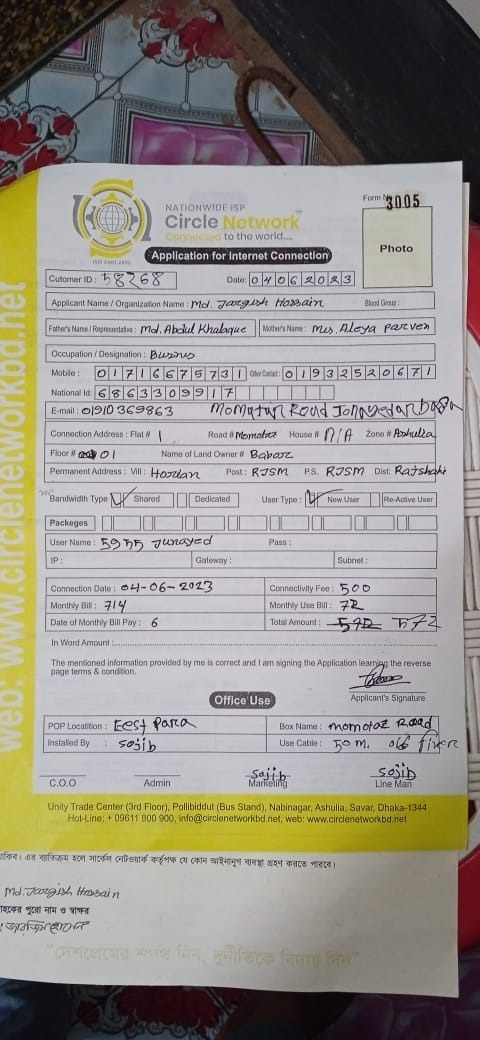 web: www.circlenetworkbd.net
NATIONWIDE ISP
Circle Network
Connected to the world....
ISO 9001:2015
Form No 3005
Photo
Application for Internet Connection
Cutomer ID : 58268 Date: 04062023
Applicant Name / Organization Name : Md. Jargish Hossain Blood Group :
Father's Name / Representative : Md. Abdul Khalaque Mother's Name : Mrs. Aleya Parven
Occupation / Designation :
Mobile : 01716675731 Other Contact : 01932520671
National Id: 6863309917
E-mail : 01910369863 Momotaz Road
Connection Address : Flat # 1 Road # Momotaz House # N/A Zone # Ashulia
Floor # 01 Name of Land Owner #
Permanent Address : Vill : Post : RJSM P.S. RJSM Dist: Rajshahi
Bandwidth Type Shared Dedicated User Type : New User Re-Active User
Packeges
User Name : Junayed Pass :
IP : Gateway : Subnet :
Connection Date : 04-06-2023 Connectivity Fee : 500
Monthly Bill : 714 Monthly Use Bill : 72
Date of Monthly Bill Pay : 6 Total Amount : 572 572
In Word Amount :
The mentioned information provided by me is correct and I am signing the Application learning the reverse
page terms & condition.
Applicant's Signature
Office Use
POP Locatition : East Para Box Name : momotaz Road
Installed By : Sojib Use Cable : 50 m.
Sojib Sojib
C.O.O Admin Marketing Line Man
Unity Trade Center (3rd Floor), Pollibiddut (Bus Stand), Nabinagar, Ashulia, Savar, Dhaka-1344
Hot-Line: + 09611 800 900, info@circlenetworkbd.net, web: www.circlenetworkbd.net
এর ব্যতিক্রম হলে সার্কেল নেটওয়ার্ক কর্তৃপক্ষ যে কোন আইনানুগ ব্যবস্থা গ্রহণ করতে পারবে।
Md. Jargish Hossain
পুরো নাম ও স্বাক্ষর
"দেশপ্রেমের শপথ নিন, দুর্নীতিকে বিদায় দিন"